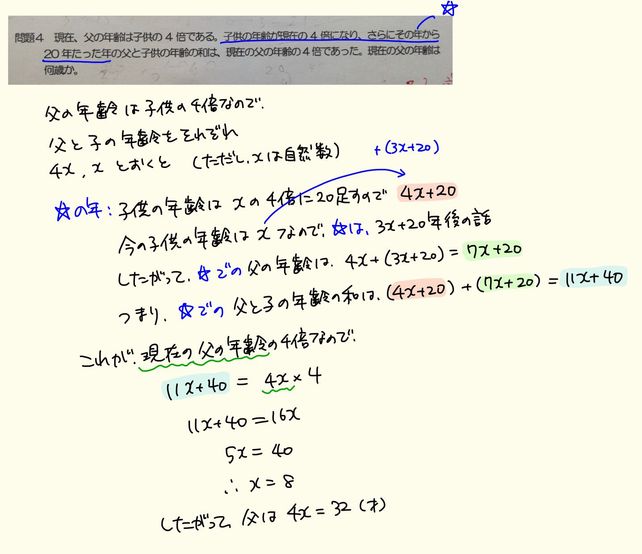 ☆
問題4 現在、父の年齢は子供の4倍である。子供の年齢が現在の4倍になり、さらにその年から
20年たった年の父と子供の年齢の和は、現在の父の年齢の4倍であった。現在の父の年齢は
何歳か。
父の年齢は子供の4倍なので、
父と子の年齢をそれぞれ
4x, x とおくと (ただし、xは自然数)
+(3x+20)
☆の年: 子供の年齢は xの4倍に20足すので 4x+20
今の子供の年齢は x なので、☆は、3x+20年後の話
したがって、☆での父の年齢は、4x+(3x+20) = 7x+20
つまり、☆での父と子の年齢の和は、(4x+20)+(7x+20) = 11x+40
これが、現在の父の年齢の4倍なので、
11x+40 = 4x×4
11x+40 = 16x
5x = 40
∴ x = 8
したがって、父は 4x = 32 (才)